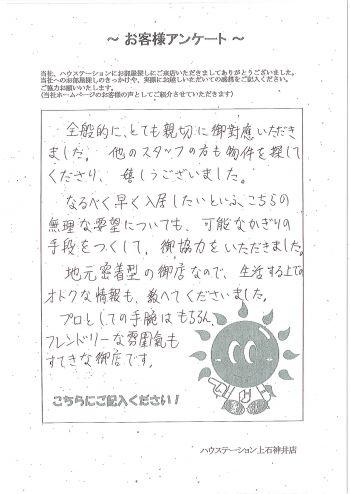 ～ お客様アンケート ～
当社、ハウステーションにお部屋探しにご来店いただきましてありがとうございました。
当社へのお部屋探しのきっかけや、実際にお越しいただいての感想をご記入ください。
ご協力お願いいたします。
（当社ホームページのお客様の声としてご紹介させていただきます）
全般的に、とても親切に御對應いただき
ました。他のスタッフの方も物件を探して
くださり、嬉しうございました。
なるべく早く入居したいといふ、こちらの
無理な要望についても、可能なかぎりの
手段をつくして、御協力をいただきました。
地元密着型の御店なので、生活する上での
オトクな情報も、教へてくださいました。
プロとしての手腕はもちろん、
フレンドリーな雰囲氣も
すてきな御店です。
こちらにご記入ください！
ハウステーション上石神井店